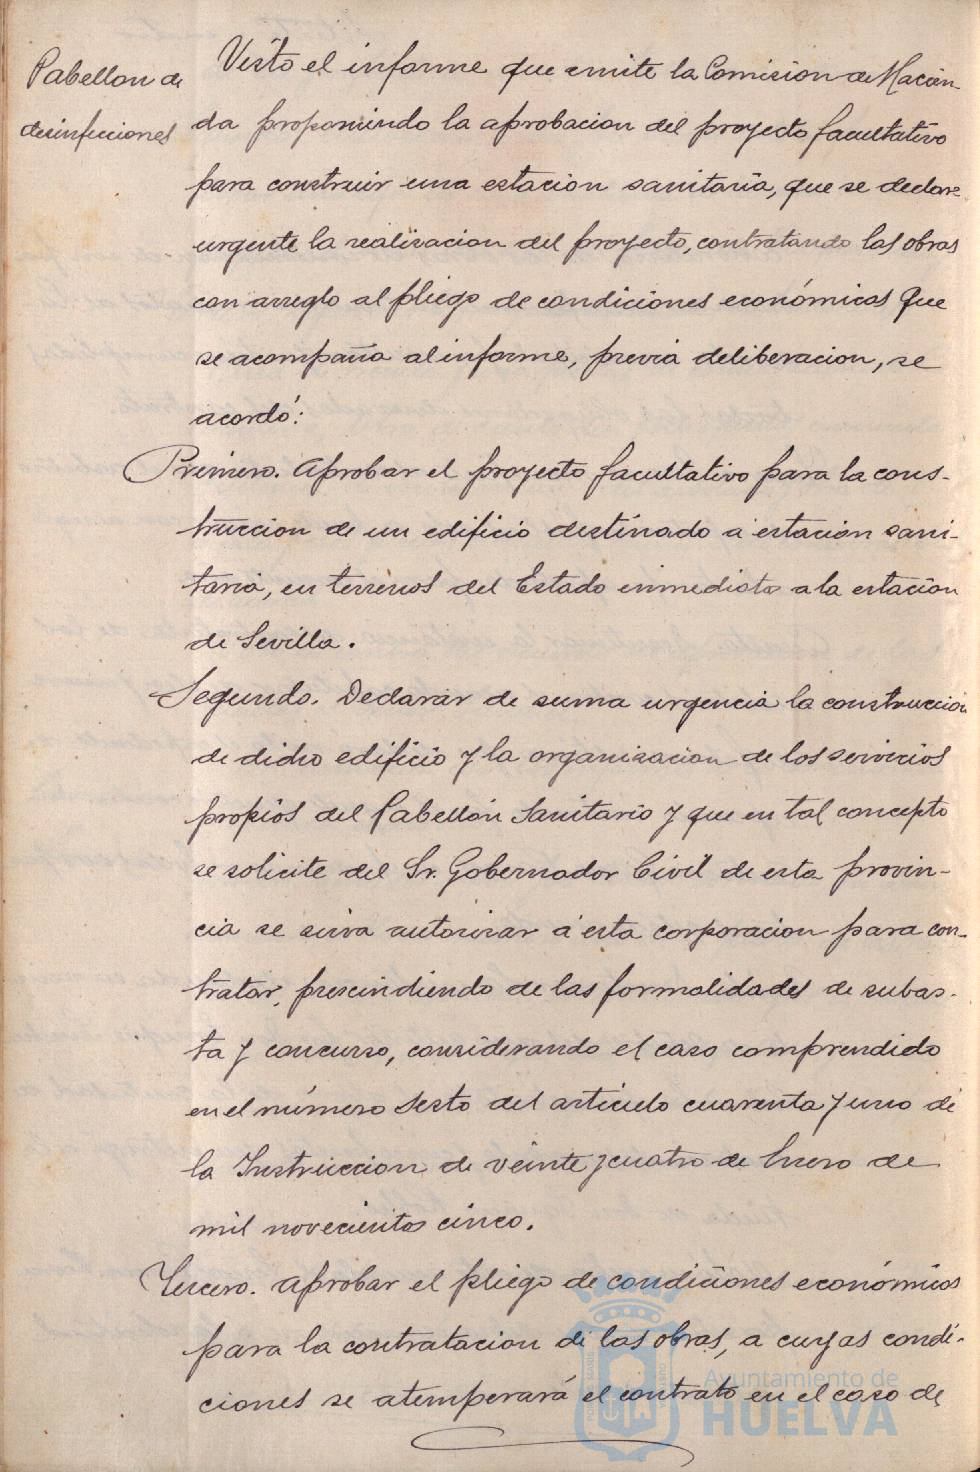 Pabellon de
desinfecciones
Visto el informe que emite la Comision de Hacien-
da proponiendo la aprobacion del proyecto facultativo
para construir una estacion sanitaria, que se declare
urgente la realizacion del proyecto, contratando las obras
con arreglo al pliego de condiciones económicas que
se acompaña al informe, previa deliberacion, se
acordó:
Primero. Aprobar el proyecto facultativo para la cons-
truccion de un edificio destinado a estacion sani-
taria, en terrenos del Estado inmediatos a la estacion
de Sevilla.
Segundo. Declarar de suma urgencia la construccion
de dicho edificio y la organizacion de los servicios
propios del Pabellón Sanitario y que en tal concepto
se solicite del Sr. Gobernador Civil de esta provin-
cia se sirva autorizar á esta corporacion para con-
tratar, prescindiendo de las formalidades de subas-
ta y concurso, considerando el caso comprendido
en el número sesto del articulo cuarenta y uno de
la Instruccion de veinte y cuatro de Enero de
mil novecientos cinco.
Tercero. Aprobar el pliego de condiciones económicas
para la contratacion de las obras, a cuyas condi-
ciones se atemperará el contrato en el caso de
Ayuntamiento de
HUELVA